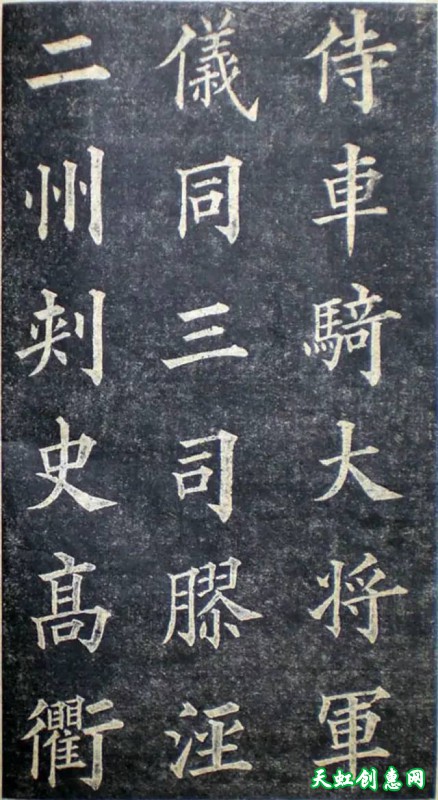 侍車騎大将軍
儀同三司膠涇
二州刾史髙衢
天虹创惠网